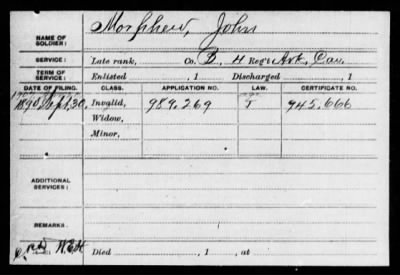 NAME OF SOLDIER: Morphew, John
SERVICE: Late rank, Co. B, 4 Reg't Ark. Cav.
TERM OF SERVICE: Enlisted , 1 Discharged , 1
DATE OF FILING. CLASS. APPLICATION NO. LAW. CERTIFICATE NO.
1890 Sept. 30, Invalid, 989.269 J 945.666
Widow,
Minor,
ADDITIONAL SERVICES:
REMARKS:
Died , 1 , at